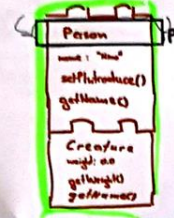 Person
name : "Nino"
getName()
Creature
weight: 0.0
getWeight()
getName()